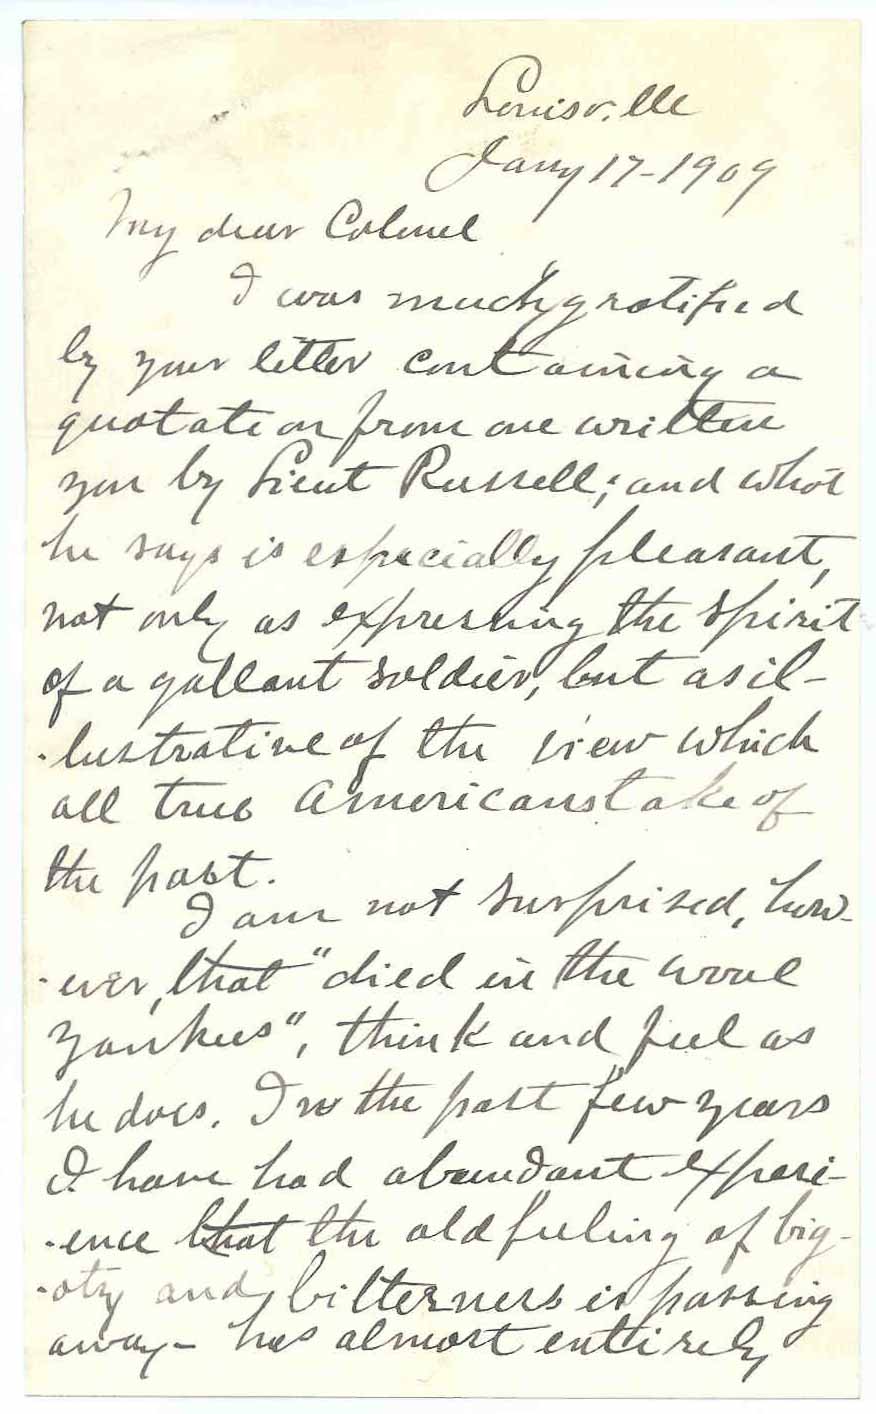 Louisville
Jany 17-1909
My dear Colonel
I was much gratified
by your letter containing a
quotation from one written
you by Lieut Russell; and what
he says is especially pleasant,
not only as expressing the spirit
of a gallant soldier, but as il-
-lustrative of the view which
all true Americans take of
the past.
I am not surprised, how-
-ever, that "died in the wool
Yankees", think and feel as
he does. In the past few years
I have had abundant experi-
-ence that the old feeling of big-
-oty and bitterness is passing
away - has almost entirely